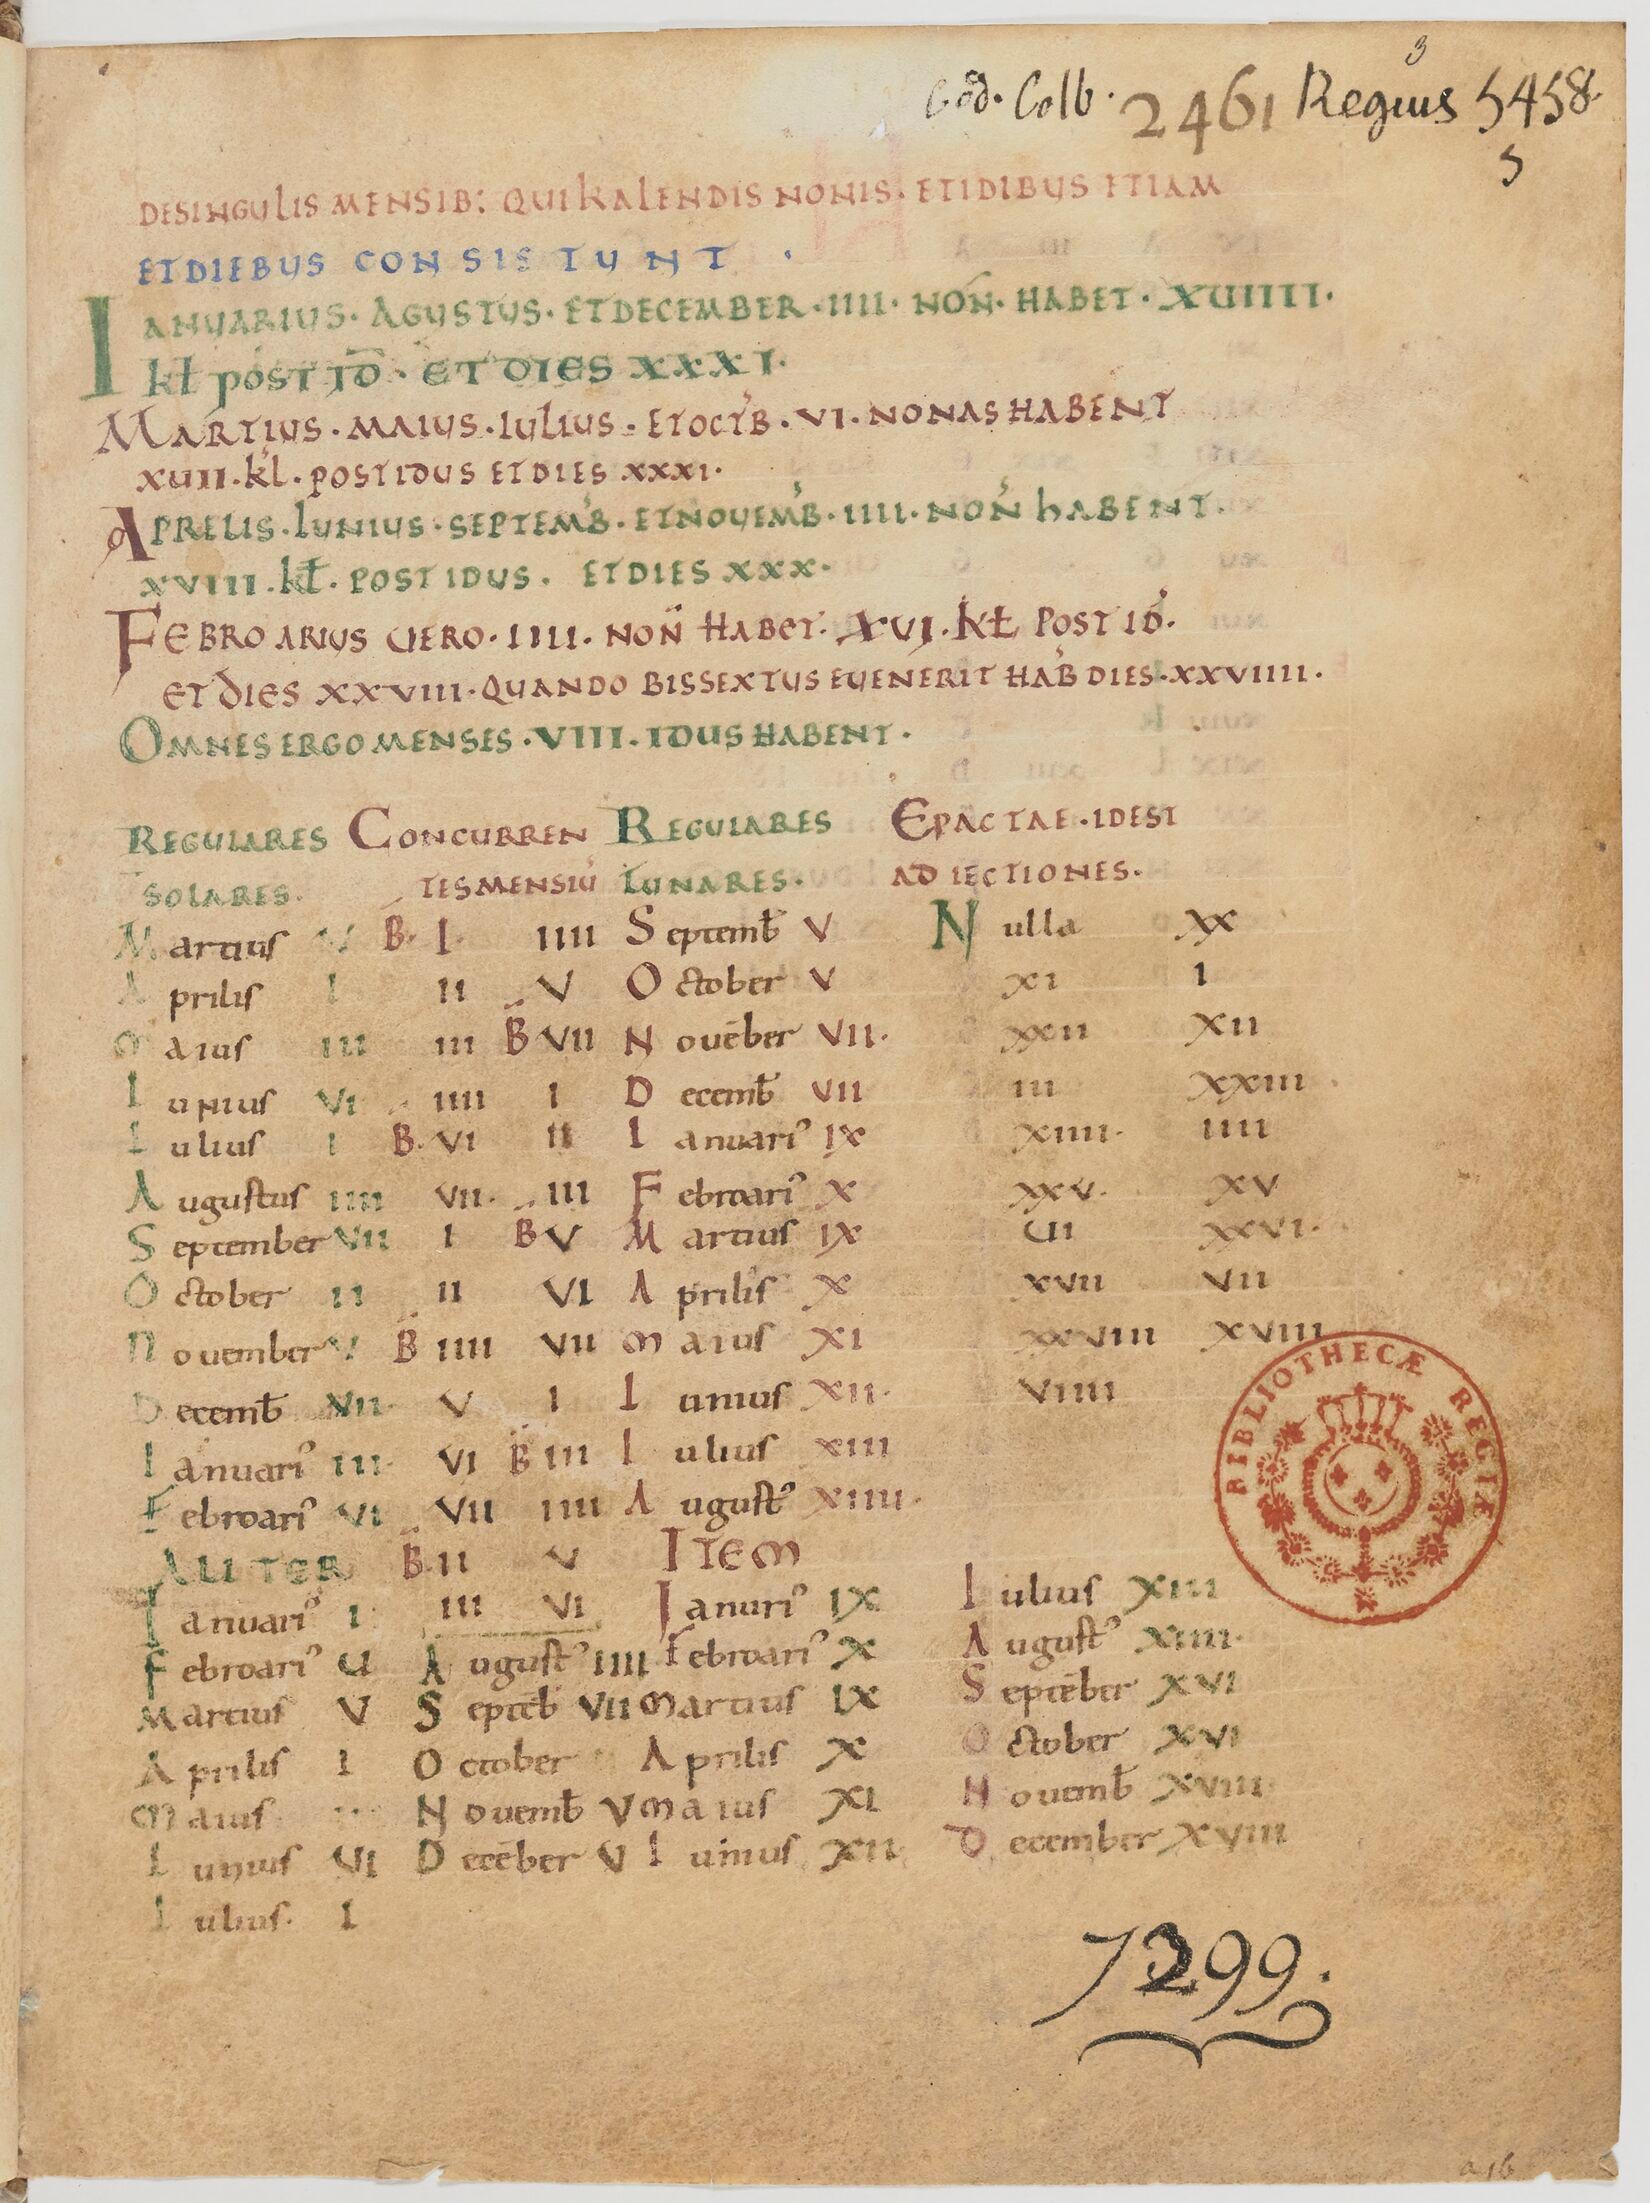 Cod. Colb. 2461 Regius 5458.
3
5
DESINGULIS MENSIB: QUI KALENDIS NONIS. ETIDIBUS ETIAM
ETDIEBUS CONSISTUNT.
IANUARIUS. AGUSTUS. ETDECEMBER. IIII. NON. HABET. XUIIII.
kł post ID. ET DIES XXXI.
MARTIUS. MAIUS. IULIUS. ETOCTB. VI. NONAS HABENT
XUII. kl. POST IDUS ET DIES XXXI.
APRELIS. IUNIUS. SEPTEMB. ETNOUEMB. IIII. NON HABENT.
XVIII. kł. POST IDUS. ETDIES XXX.
FEBROARIUS UERO. IIII. NON HABET. XVI. Kł POST ID.
ET DIES XXVIII. QUANDO BISSEXTUS EUENERIT HAB DIES. XXVIIII.
OMNES ERGO MENSES. VIII. IDUS HABENT.
REGULARES CONCURREN REGULARES EPACTAE. IDEST
SOLARES. TES MENSIŪ LUNARES. ADIECTIONES.
Martius V B. I. IIII Septemƀ V Nulla XX
Aprilis I II V October V XI I
Maius III III B VII Nouēber VII. XXII XII
Iunius VI IIII I Decemƀ VII III XXIII
Iulius I B. VI II Ianuari' IX XIIII. IIII
Augustus IIII VII. III Febroari' X XXV. XV
September VII I B V Martius IX UI XXVI.
October II II VI Aprilis X XVII VII
Nouember V B IIII VII Maius XI XXVIII XVIII
Decemƀ VII. V I Iunius XII. VIIII
Ianuari' III. VI B III Iulius XIII
Febroari' VI VII IIII August' XIIII.
ALITER B. II V ITEM
Ianuari' I III VI Ianuri' IX Iulius XIII
Febroari' U August' IIII Febroari' X August' XIIII.
Martius V Septēb VII Martius IX Septēber XVI
Aprilis I October Aprilis X October XVI
Maius Nouemƀ V Maius XI Nouemƀ XVIII.
Iunius UI Decēber V Iunius XII. December XVIII
Iulius. I
BIBLIOTHECÆ REGIÆ
1299.